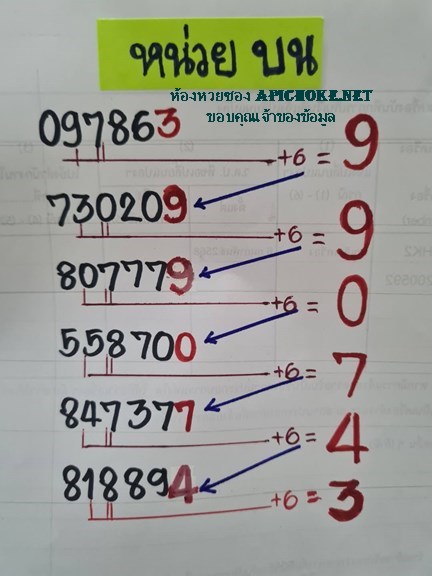 หน่วย บน
ห้องหวยซอง APICHOKE.NET
ขอบคุณเจ้าของข้อมูล
097863
+6 = 9
730209
+6 = 9
807779
+6 = 0
558700
+6 = 7
847377
+6 = 4
818894
+6 = 3